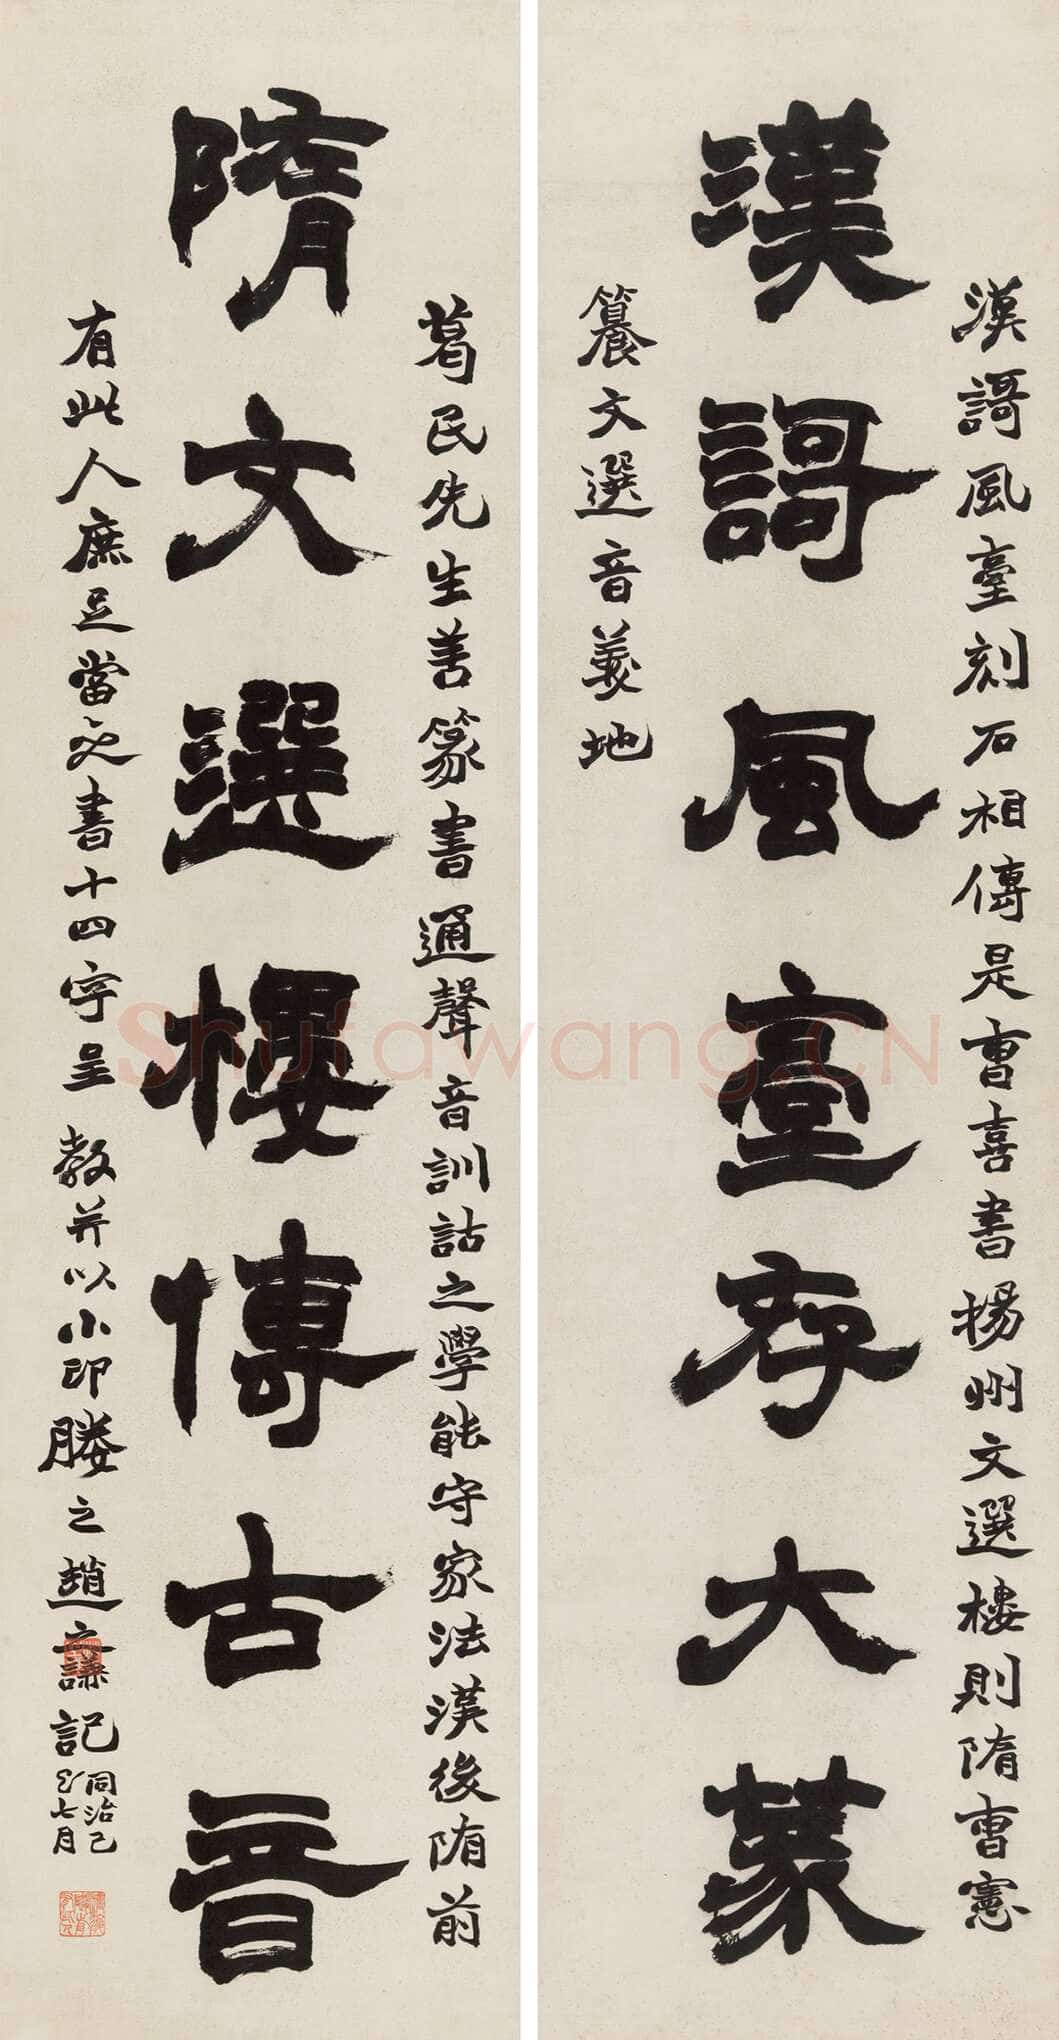 漢謌風臺存大篆
漢謌風臺刻石相傳是曹喜書揚州文選樓則隋曹憲
籑文選音義地
隋文選樓傳古音
葛民先生善篆書通聲音訓詁之學能守家法漢後隋前
有此人庶足當之書十四字呈
教并以小印媵之趙之謙記
同治己
巳七月
Shufawang.CN